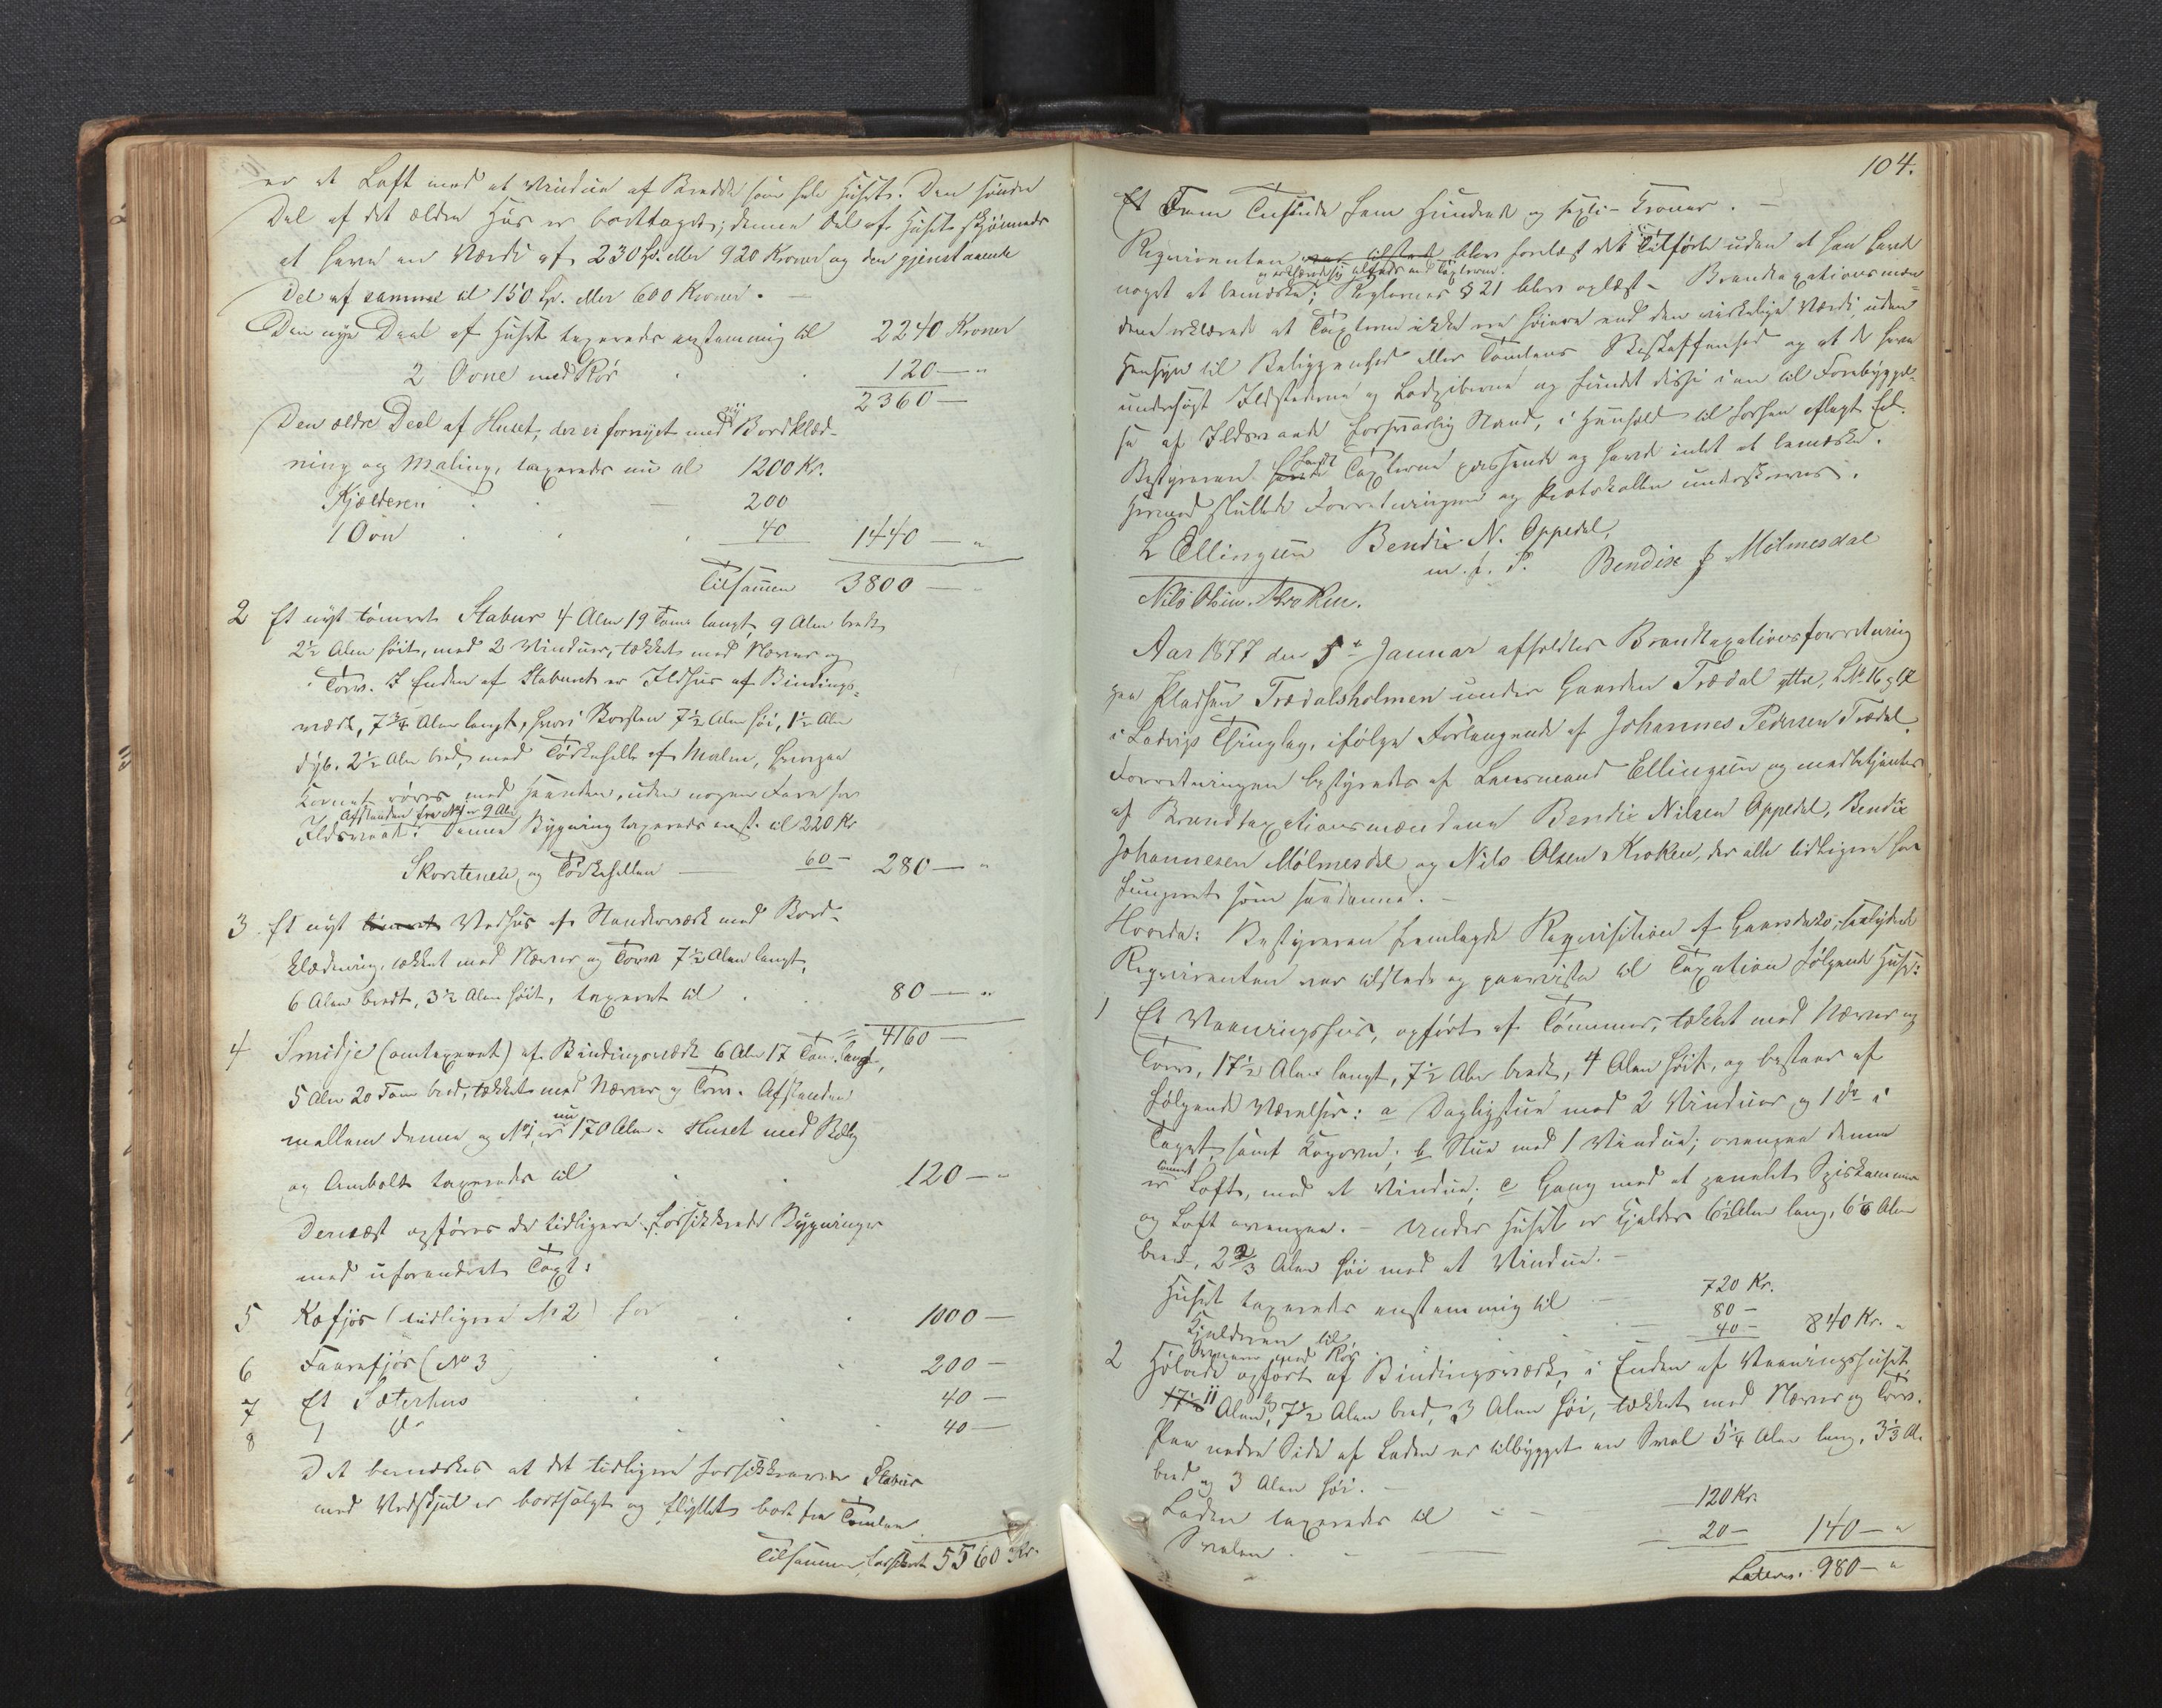 er et Loft med et Vindue af Bredde som hele Huset. Den søndre
Del af det ældre Hus er borttaget; denne Del af Huset skjønnedes
at have en Værdi af 230 Spd. eller 920 Kroner og den gjenstaaende
Del af samme til 150 Spd. eller 600 Kroner. —
Den nye Deel af Huset taxeredes enstemmig til 2240 Kroner
2 Ovne med Rør . . 120 — "
2360 —
Den ældre Deel af Huset, der er fornyet med ny Bordklæd-
ning og Maling, taxeredes nu til 1200 Kr.
Kjælderen . . — 200
1 Ovn . . . 40 1440 — "
Tilsammen 3800 — "
2 Et nyt tømret Stabur 4 Alen 19 Tom. langt, 9 Alen bredt,
2½ Alen høit, med 2 Vinduer, tækket med Næver og
Torv. I Enden af Staburet er Ildhus af Bindings-
værk, 7¾ Alen langt, hvori Skorsten 7½ Alen høi, 1½ Alen
dyb, 2½ Alen bred, med Tørkehelle af Malm, hvorpaa
Kornet røres med Haanden, uden nogen Fare for
Afstanden fra No 1 er 9 Alen
Ildsvaade. Denne Bygning taxeredes enst. til 220 Kr
Skorstenen og Tørkehellen — 60 — 280 — "
3 Et nyt tømret Vedhus af Standerværk med Bord-
klædning, tækket med Næver og Torv 7½ Alen langt,
6 Alen bredt, 3½ Alen høit, taxeret til . . 80 — "
= 4160 —
4 Smidje (omtaxeret) af Bindingsværk 6 Alen 17 Tom. lang,
5 Alen 20 Tom bred, tækket med Næver og Torv. Afstanden
mellem denne og No 1 er nu 170 Alen. Huset med Bælg
og Ambolt taxeredes til . . 120 — "
Dernæst opføres de tidligere forsikkrede Bygninger
med uforandret Taxt:
5 Kofjøs (tidligere No 2) for . . 1000 —
6 Faarefjøs (No 3 . . . 200 —
7 Et Sæterhus . . 40 —
8 1 do . . . 40 —
Det bemærkes at det tidligere forsikkrede Stabur
med Vedskjul er bortsolgt og flyttet bort fra Tomten
Tilsammen forsikret 5560 Kr.
104.
Et Fem Tusinde fem Hundrede og sexti Kroner. —
Requirenten var tilstede blev forelæst det Tilførte uden at han havde
og erklærede sig tilfreds med Taxterne.
noget at bemærke; Reglernes § 21 blev oplæst — Brandtaxationsmæn-
dene erklærede at Taxterne ikke ere høiere end den virkelige Værdi, uden
Hensyn til Beliggenhed eller Tomtens Beskaffenhed og at de have
undersøgt Ildstederne og Ledepiberne og fundet disse i en til Forebyggel-
se af Ildsvaade forsvarlig Stand, i Henhold til forhen aflagt Ed.
Bestyreren fandt Taxterne passende og havde intet at bemærke.
Hermed sluttede Forretningen og Protokollen underskreves.
L Ellingsen Bendix N. Oppedal,
m. p. P. Bendix J Mølmesdal
Nils Olsen Kroken.
Aar 1877 den 5te Januar afholdtes Brandtaxationsforretning
paa Pladsen Trædalsholmen under Gaarden Trædal ytre, LNo 16 g 12
i Ladvigs Thinglag, ifølge Forlangende af Johannes Pedersen Trædal.
Forretningen bestyredes af Lensmand Ellingsen og medbetjentes
af Brandtaxationsmændene Bendix Nilsen Oppedal, Bendix
Johannesen Mølmesdal og Nils Olsen Kroken, der alle tidligere har
fungeret som saadanne. —
Hvorda: Bestyreren fremlagde Requisition af Gaarsdato, saalydende
Requirenten var tilstede og paaviste til Taxation følgende Huse:
1 Et Vaaningshus, opført af Tømmer, tækket med Næver og
Torv, 17½ Alen langt, 7½ Alen bredt, 4 Alen høit, og bestaar af
følgende Værelser: a Dagligstue med 2 Vinduer og 1 do i
Taget, samt Kogeovn; b Stue med 1 Vindue; ovenpaa denne
er tømret Loft, med et Vindue; c Gang med et panelet Spiskammer
og Loft ovenpaa. — Under Huset er Kjelder 6½ Alen lang, 6⅙ Alen
bred, 2⅔ Alen høi med et Vindue. —
Huset taxeredes enstemmig til — 720 Kr.
Kjelderen til . . — 80 —
Ovnene med Rør . . — 40 — 840 Kr. "
2 Hølade opført af Bindingsværk, i Enden af Vaaningshuset,
17½ 11 Alen lg, 7½ Alen bred, 3 Alen høi, tækket med Næver og Torv.
Paa nedre Side af Laden er tilbygget en Sval 5¼ Alen lang, 3⅓ Al.
bred og 3 Alen høi. —
Laden taxeredes til — — 120 Kr.
Svalen . — — 20 — 140 — "
Latus. 980 — "